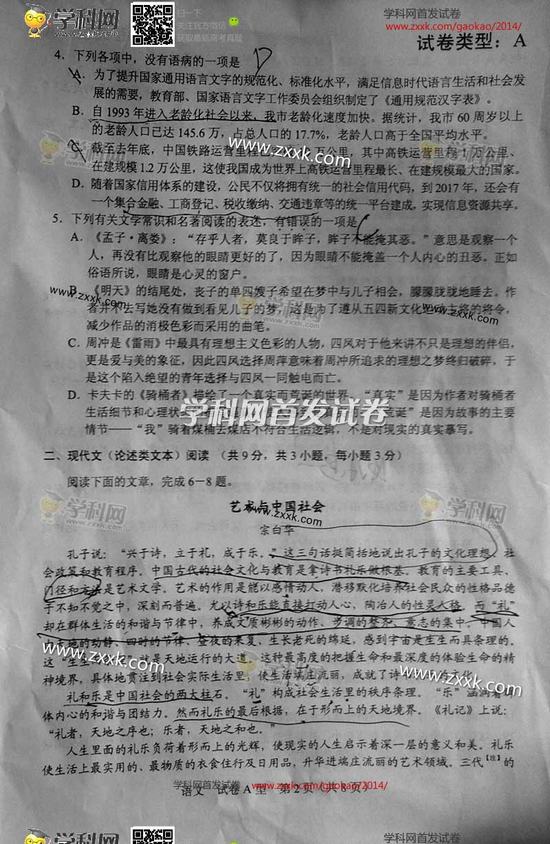 学科网
学科网首发试卷
www.zxxk.com/gaokao/2014/
关注官方微信
试卷类型：A
4．下列各项中，没有语病的一项是
A．为了提升国家通用语言文字的规范化、标准化水平，满足信息时代语言生活和社会发
展的需要，教育部、国家语言文字工作委员会组织制定了《通用规范汉字表》。
B．自1993年进入老龄化社会以来，我市老龄化速度加快。据统计，我市60周岁以上
的老龄人口已达145.6万，占总人口的17.7%，老龄人口高于全国平均水平。
C．截至去年底，中国铁路运营里程已 万公里，其中高铁运营里程 万公里、
在建规模1.2万公里，这使我国成为世界上高铁运营里程最长、在建规模最大的国家。
D．随着国家信用体系的建设，公民不仅将拥有统一的社会信用代码，到2017年，还会有
一个集合金融、工商登记、税收缴纳、交通违章等的统一平台建成，实现信息资源共享。
5．下列有关文学常识和名著阅读的表述，有错误的一项是
A．《孟子·离娄》：“存乎人者，莫良于眸子，眸子不能掩其恶。”意思是观察一个
人，再没有比观察他的眼睛更好的了，因为眼睛不能掩盖一个人内心的丑恶。正如
俗语所说，眼睛是心灵的窗户。
B．《明天》的结尾处，丧子的单四嫂子希望在梦中与儿子相会，朦朦胧胧地睡去。作
者并不去写她没有做到看见儿子的梦，这是为了遵从五四新文化 的将令，
减少作品的消极色彩而采用的曲笔。
C．周冲是《雷雨》中最具有理想主义色彩的人物，四凤对于他来讲不只是理想的伴侣，
更是爱与美的象征，因此四凤选择周萍意味着周冲所追求的理想之梦终归破碎，于
是这个陷入绝望的青年选择与四凤一同触电而亡。
D．卡夫卡的《骑桶者》描绘了一个真实而荒诞的世界。“真实”是因为作者对骑桶者
生活细节和心理状 荒诞”是因为故事的主要
情节——“我”骑着煤桶去煤店不符合生活逻辑，不是对现实的真实摹写。
二、现代文（论述类文本）阅读 （共9分，共3小题，每小题3分）
阅读下面的文章，完成6－8题。
艺术与中国社会
宗白华
孔子说：“兴于诗，立于礼，成于乐。”这三句话挺简括地说出孔子的文化理想、社
会政策和教育程序。中国古代的社会文化与教育是拿诗书礼乐做根基。教育的主要工具、
门径和方法是艺术文学。艺术的作用是能以感情动人，潜移默化培养社会民众的性格品德
于不知不觉之中，深刻而普遍。尤以诗和乐能直接打动人心，陶冶人的性灵人格。而“礼”
却在群体生活的和谐与节律中，养成文质彬彬的动作、步调的整齐、意志的集中。中国人
在天地的动静，四时的节律，昼夜的来复，生长老死的绵延，感到宇宙是生生而具条理的。
这“生生而条理”就是天地运行的大道 这种最高度的把握生命和最深度的体验生命的精
神境界，具体地贯注到社会实际生活里，使生活端庄流丽，成就了诗书礼乐
礼和乐是中国社会的两大柱石。“礼”构成社会生活里的秩序条理。“乐”涵润着
体内心的和谐与团结力。然而礼乐的最后根据，在于形而上的天地境界。《礼记》上说：
“礼者，天地之序也；乐者，天地之和也。”
人生里面的礼乐负荷着形而上的光辉，使现实的人生启示着深一层的意义和美。礼乐
使生活上最实用的、最物质的衣食住行及日用品，升华进端庄流丽的艺术领域。三代【注】的
语文 试卷A型 第2页（共8页）
www.zxxk.com/gaokao/2014/
学科网首发试卷
www.zxxk.com
学科网
学科网首发试卷